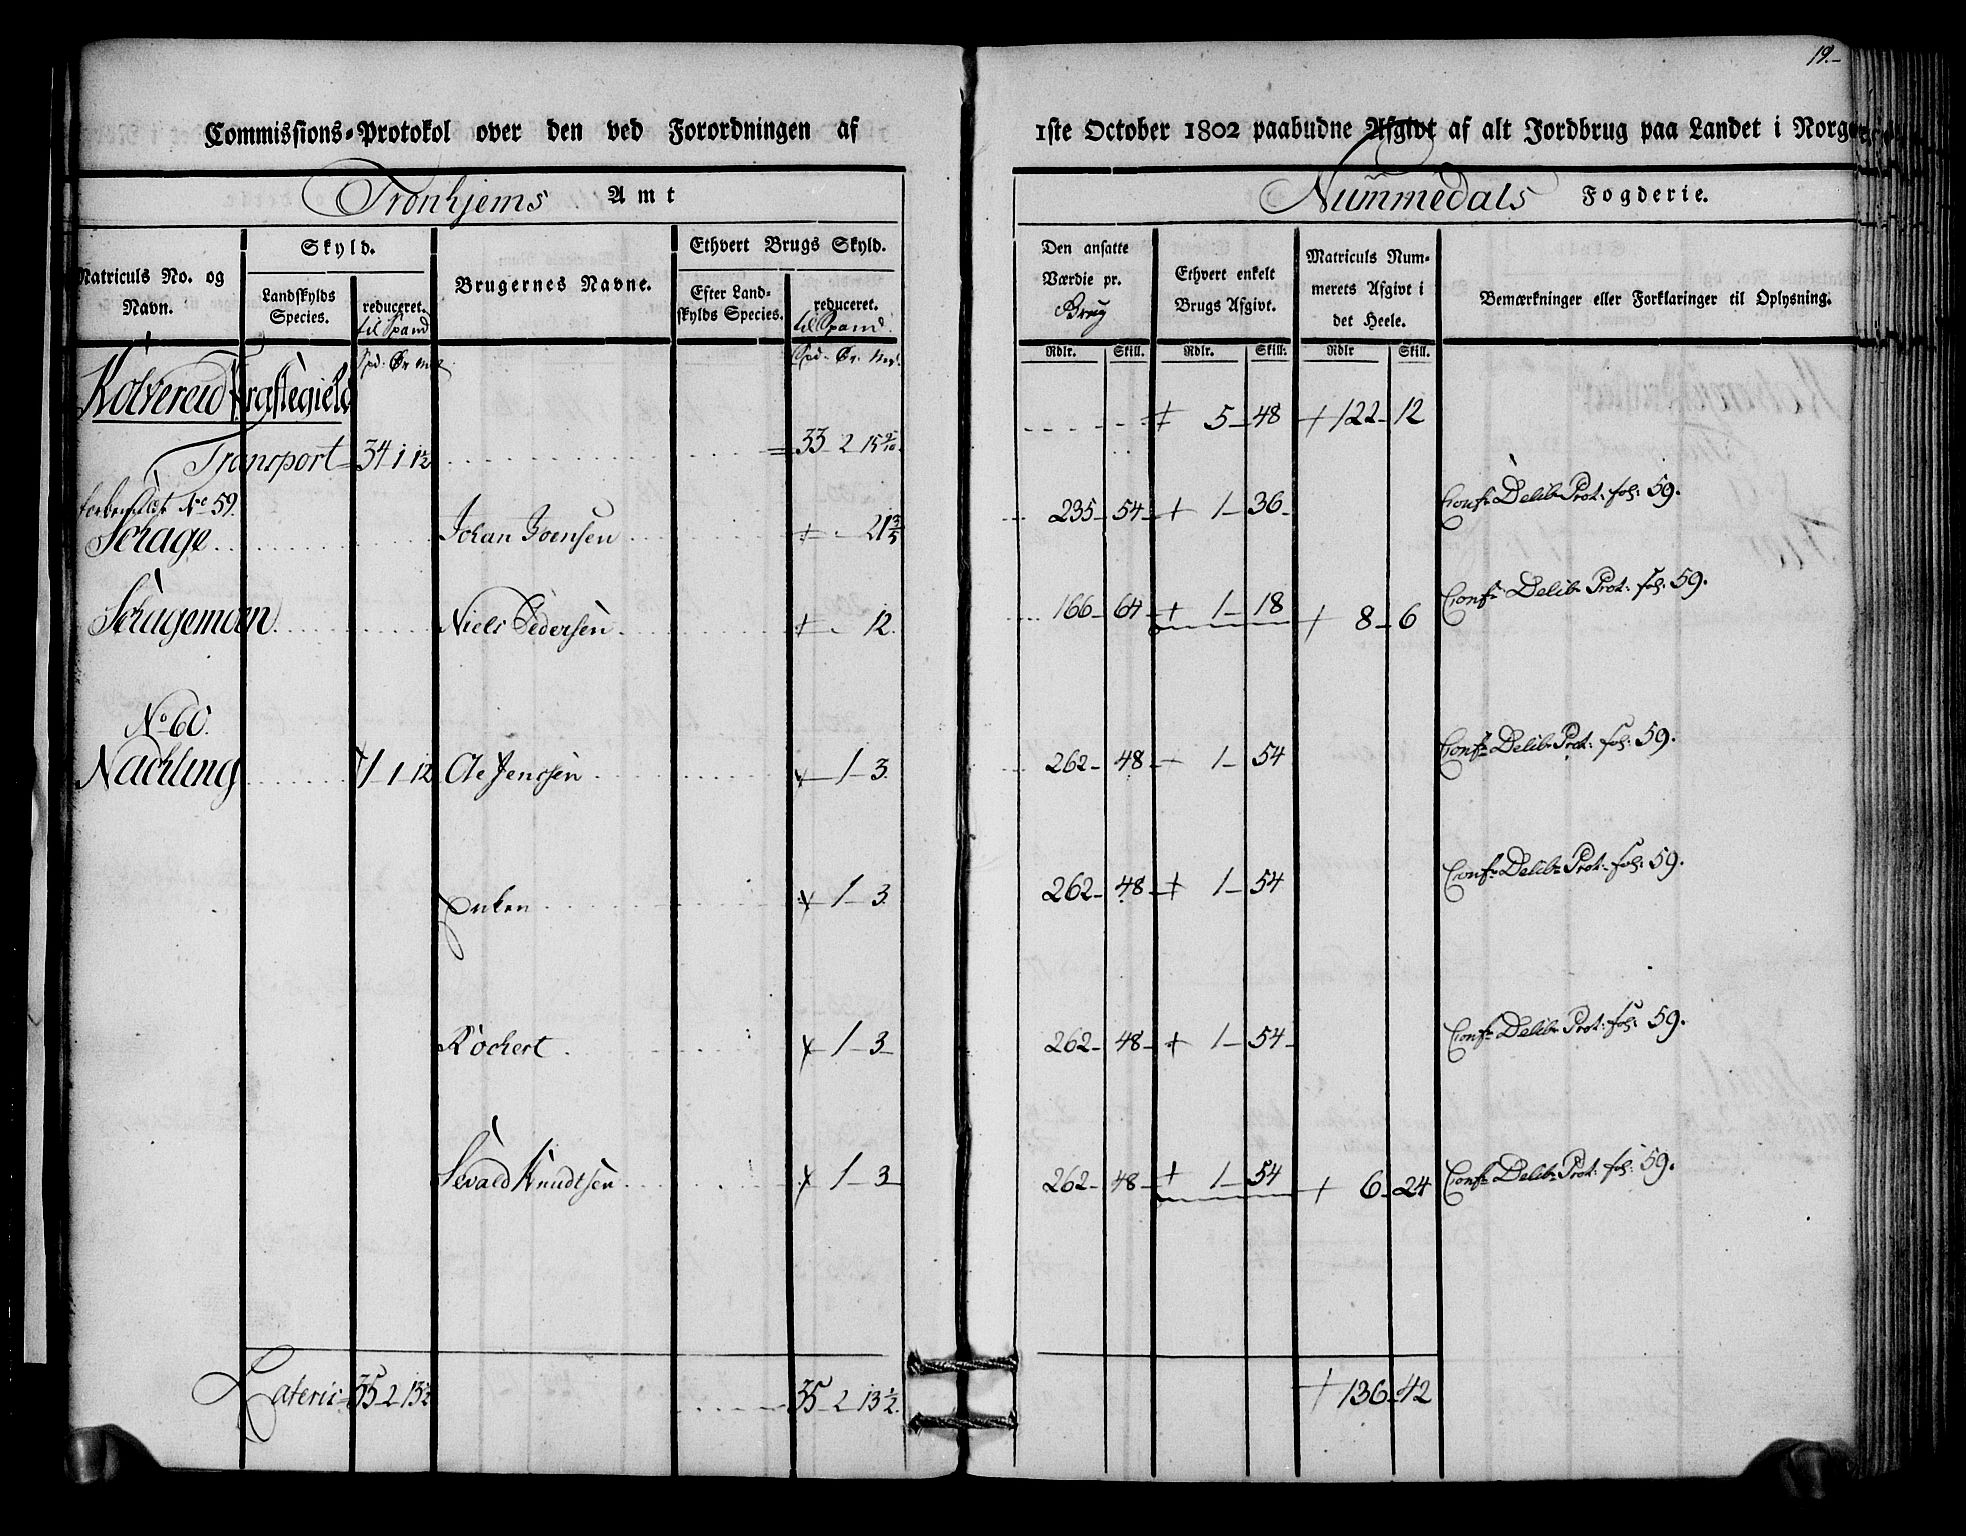 19.
Commissions-Protokol over den ved Forordningen af 1ste October 1802 paabudne Afgivt af alt Jordbrug paa Landet i Norge
Tronhjems Amt
Nummedals Fogderie.
Matriculs No. og Navn.
Skyld.
Landskylds Species.
reduceret. til Spand
Brugernes Navne.
Ethvert Brugs Skyld.
Efter Landskylds Species.
reduceret. til Spand.
Den ansatte Værdie pr. Brug
Ethvert enkelt Brugs Afgivt.
Matriculs Nummerets Afgivt i det Heele.
Bemærkninger eller Forklaringer til Oplysning.
Rdlr. Skill. Rdlr. Skill. Rdlr Skill.
Kolvereid Præstegield
5 - 48 122 - 12
Transport 34 1 1½ 33 2 15 9/10
No 59.
Schage Johan Ivensen 21 3/5 235 - 54 1 - 36 Conf: Delib: Prot: fol: 59.
Schagemoen Niels Pedersen 12. 166 - 64 1 - 18 8 - 6 Conf: Delib: Prot: fol: 59.
No 60.
Nachling 1 1 12 Ole Jenssen 1 - 3. 262 - 48 1 - 54 Conf: Delib: Prot: fol: 59.
Enken 1 - 3. 262 - 48 1 - 54 Conf: Delib: Prot: fol: 59.
Rochert 1 - 3 262 - 48 1 - 54 Conf: Delib: Prot: fol: 59.
Sevald Knudtsen 1 - 3 262 - 48 1 - 54 6 - 24 Conf: Delib: Prot: fol: 59.
Lateris 35 2 13½ 35 2 13½ 136 - 42